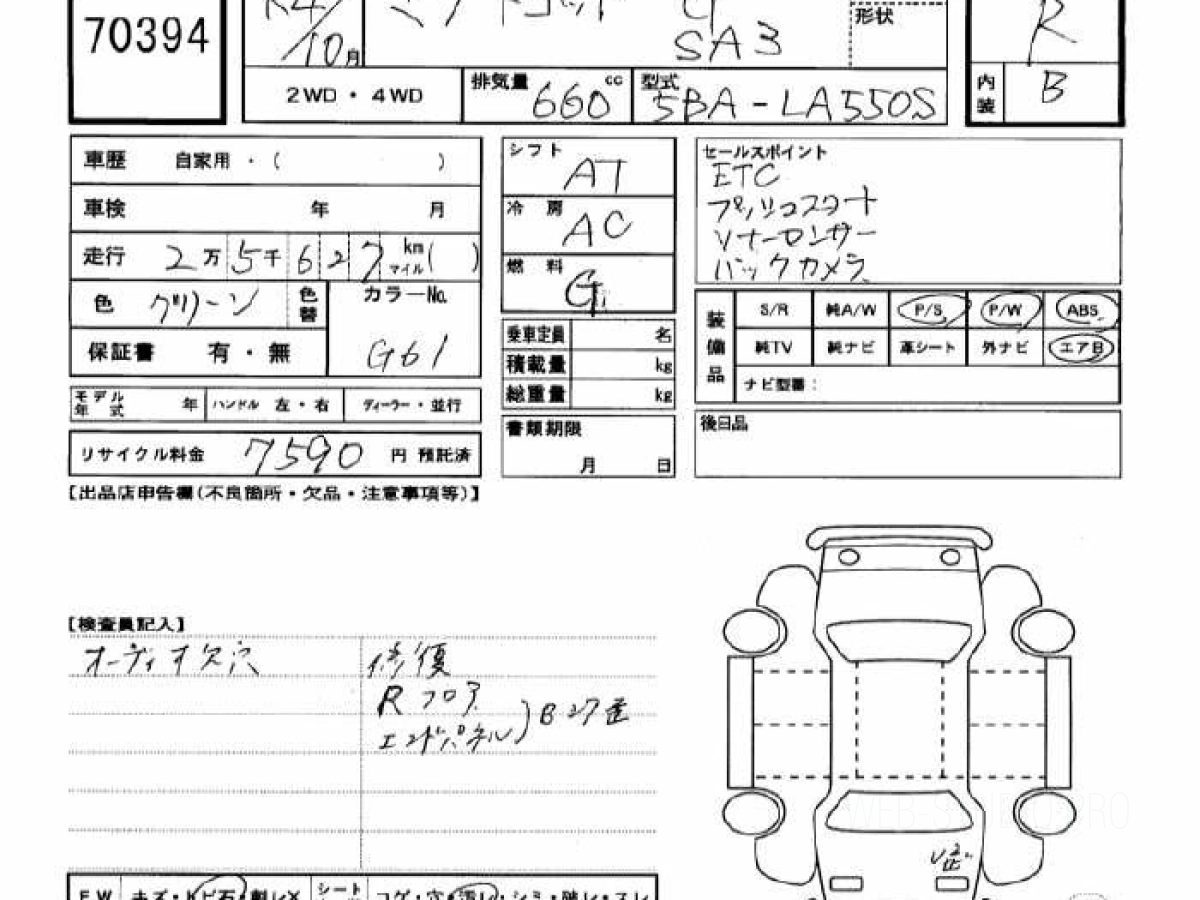 70394
R4/10月
ミラトコット
G
SA3
形状
R
2WD・4WD
排気量 660 cc
型式 5BA-LA550S
内装 B
車歴 自家用・( )
車検 年 月
走行 2万5千627 km マイル ( )
色 グリーン 色替
カラーNo. G61
保証書 有・無
モデル年式 年 ハンドル 左・右 ディーラー・並行
リサイクル料金 7590 円 預託済
シフト AT
冷房 AC
燃料 G
乗車定員 名
積載量 kg
総重量 kg
書類期限
月 日
セールスポイント
ETC
プッシュスタート
ソナーセンサー
バックカメラ
装備品
S/R 純A/W P/S P/W ABS
純TV 純ナビ 革シート 外ナビ エアB
ナビ型番:
後日品
【出品店申告欄(不良箇所・欠品・注意事項等)】
【検査員記入】
オーディオ欠穴
修復
Rフロア
エンドパネル
WEB-STUDIO.PRO
FW キズ・トビ石・割レX シート コゲ・穴・汚レ・シミ・破レ・スレ